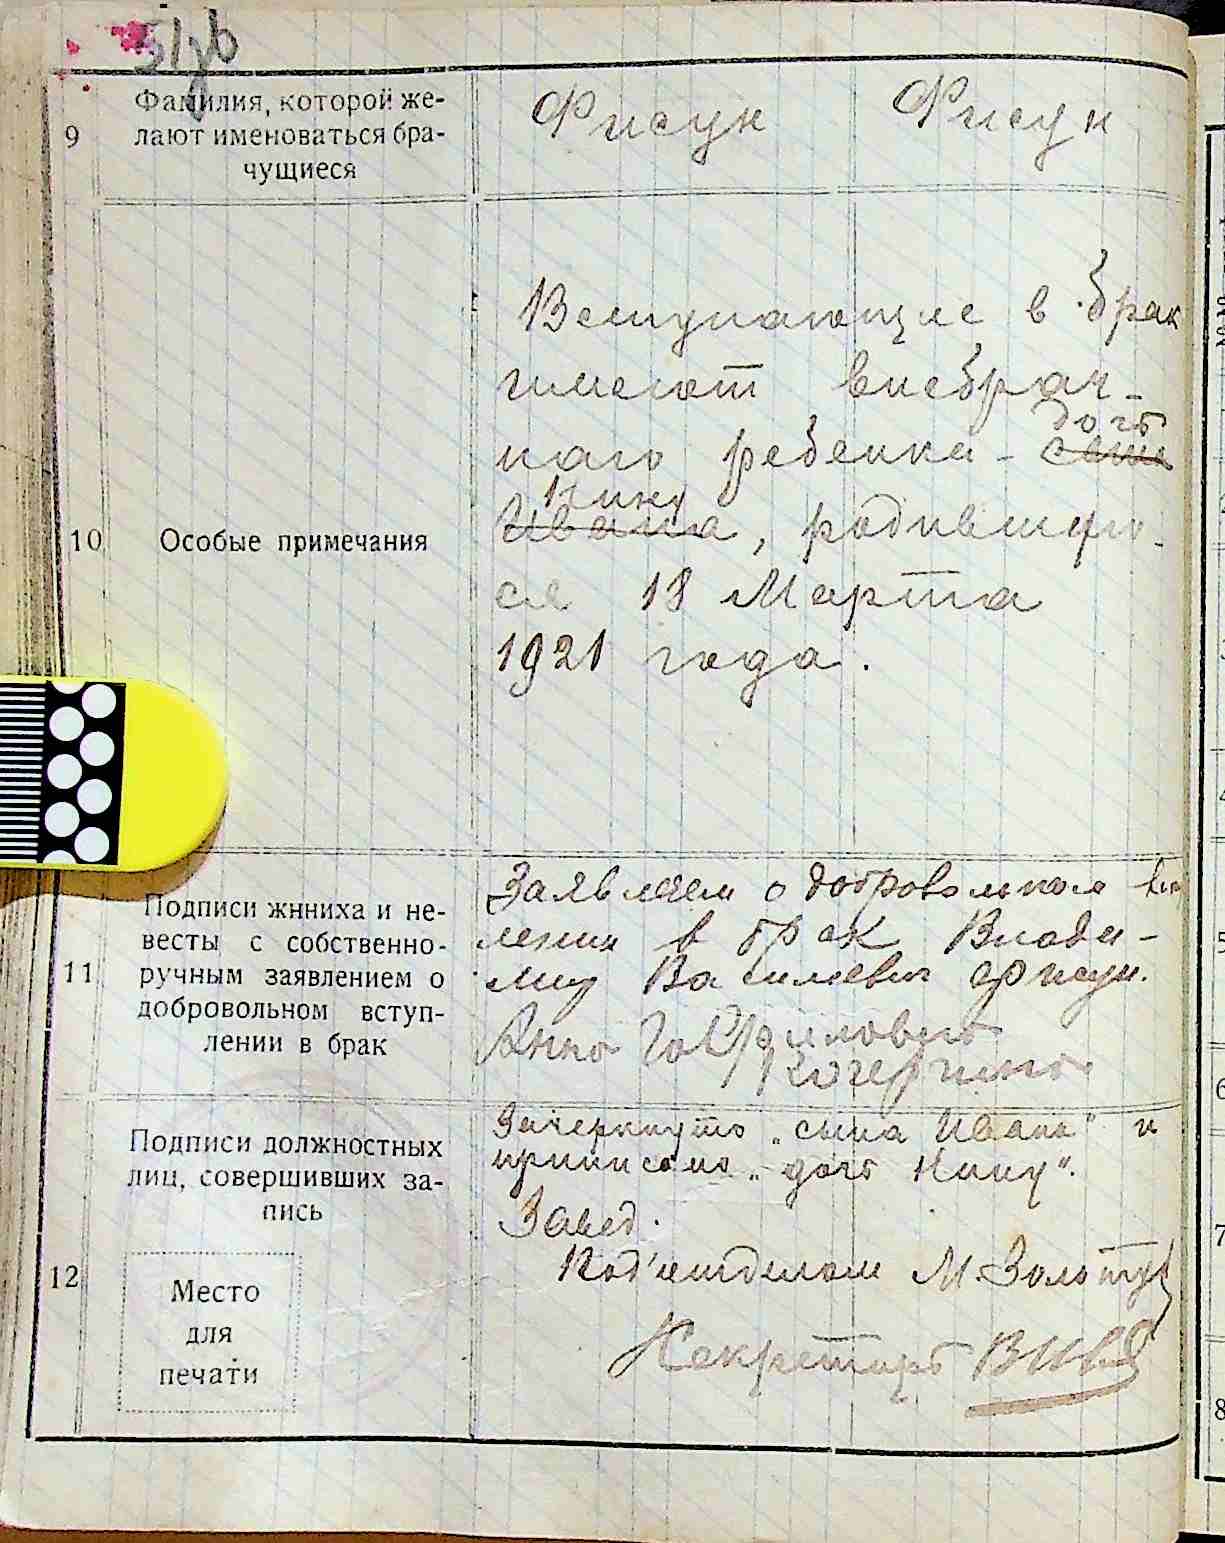 51об
9
Фамилия, которой же-
лают именоваться бра-
чущиеся
Фисун Фисун
10
Особые примечания
Вступающие в брак
имеют внебрач-
наго ребенка - сына
дочь
Ивана, родившую-
Нину
ся 18 Марта
1921 года.
11
Подписи жниха и не-
весты с собственно-
ручным заявлением о
добровольном вступ-
лении в брак
Заявляем о добровольном всту
лении в брак Влади-
мир Василиевич Фисун.
Анна Гавриловна
Кочергина
12
Подписи должностных
лиц, совершивших за-
пись
Место
для
печати
Зачеркнуто „сына Ивана" и
приписано „дочь Нину".
Завед.
Под'отделом М. Золоту
Секретарь
4
5
6
7
8